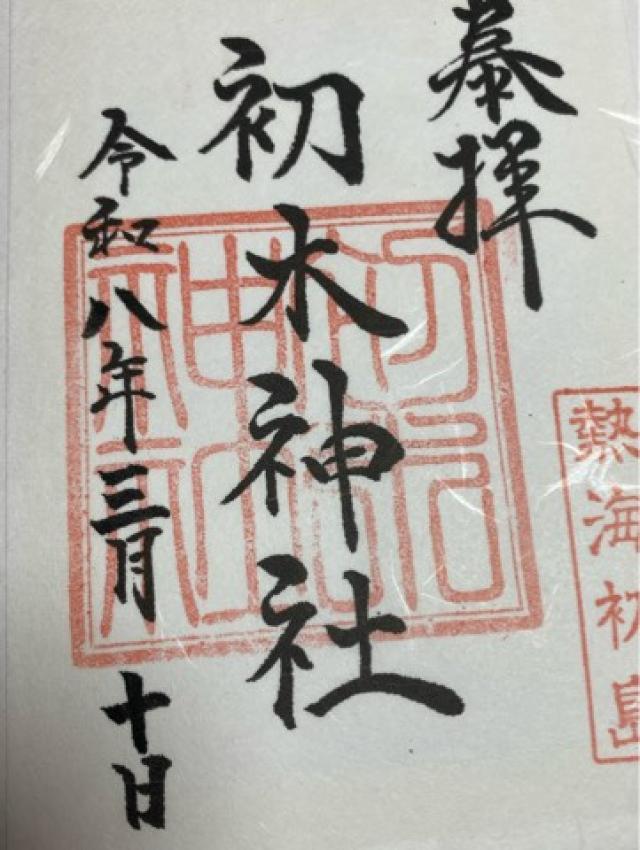 奉拝
熱海初島
初木神社
令和八年三月十日